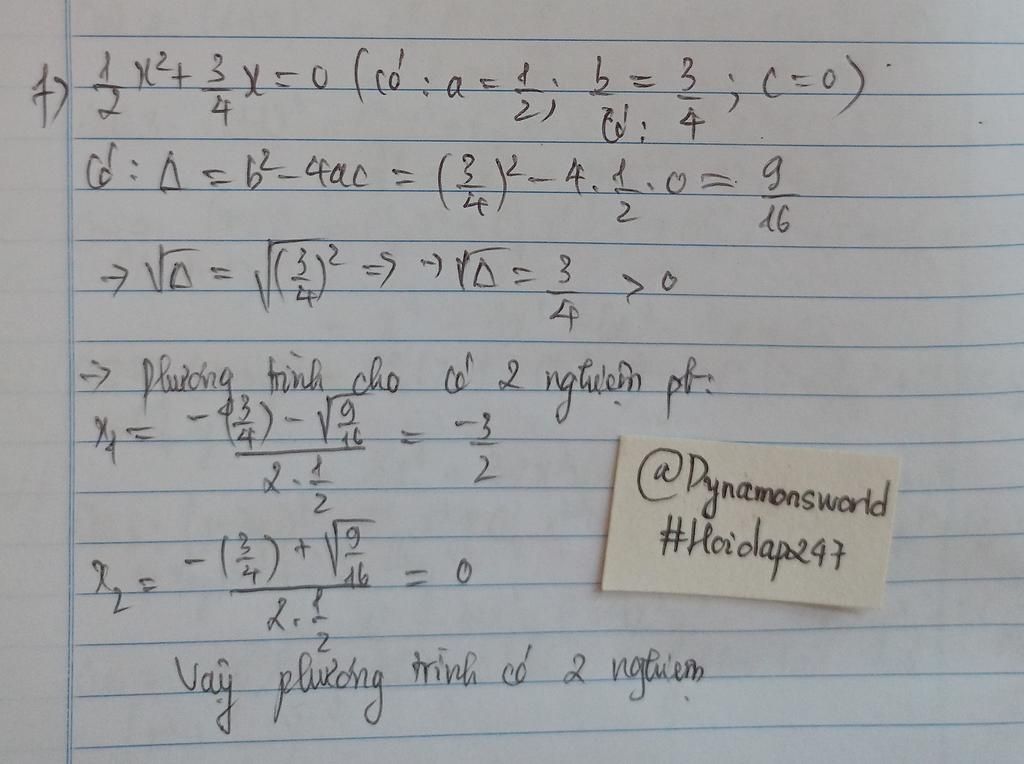 f) 1/2 x² + 3/4 x = 0 (Có : a = 1/2; b = 3/4; c = 0)
Có:
Có : Δ = b² - 4ac = (3/4)² - 4 . 1/2 . 0 = 9/16
→ √Δ = √(3/4)² => → √Δ = 3/4 > 0
→ Phương trình cho có 2 nghiệm pb:
x₁ = (-(3/4) - √(9/16)) / (2 . 1/2) = -3/2
x₂ = (-(3/4) + √(9/16)) / (2 . 1/2) = 0
Vậy phương trình có 2 nghiệm
@Dynamonsworld
#Hoidap247